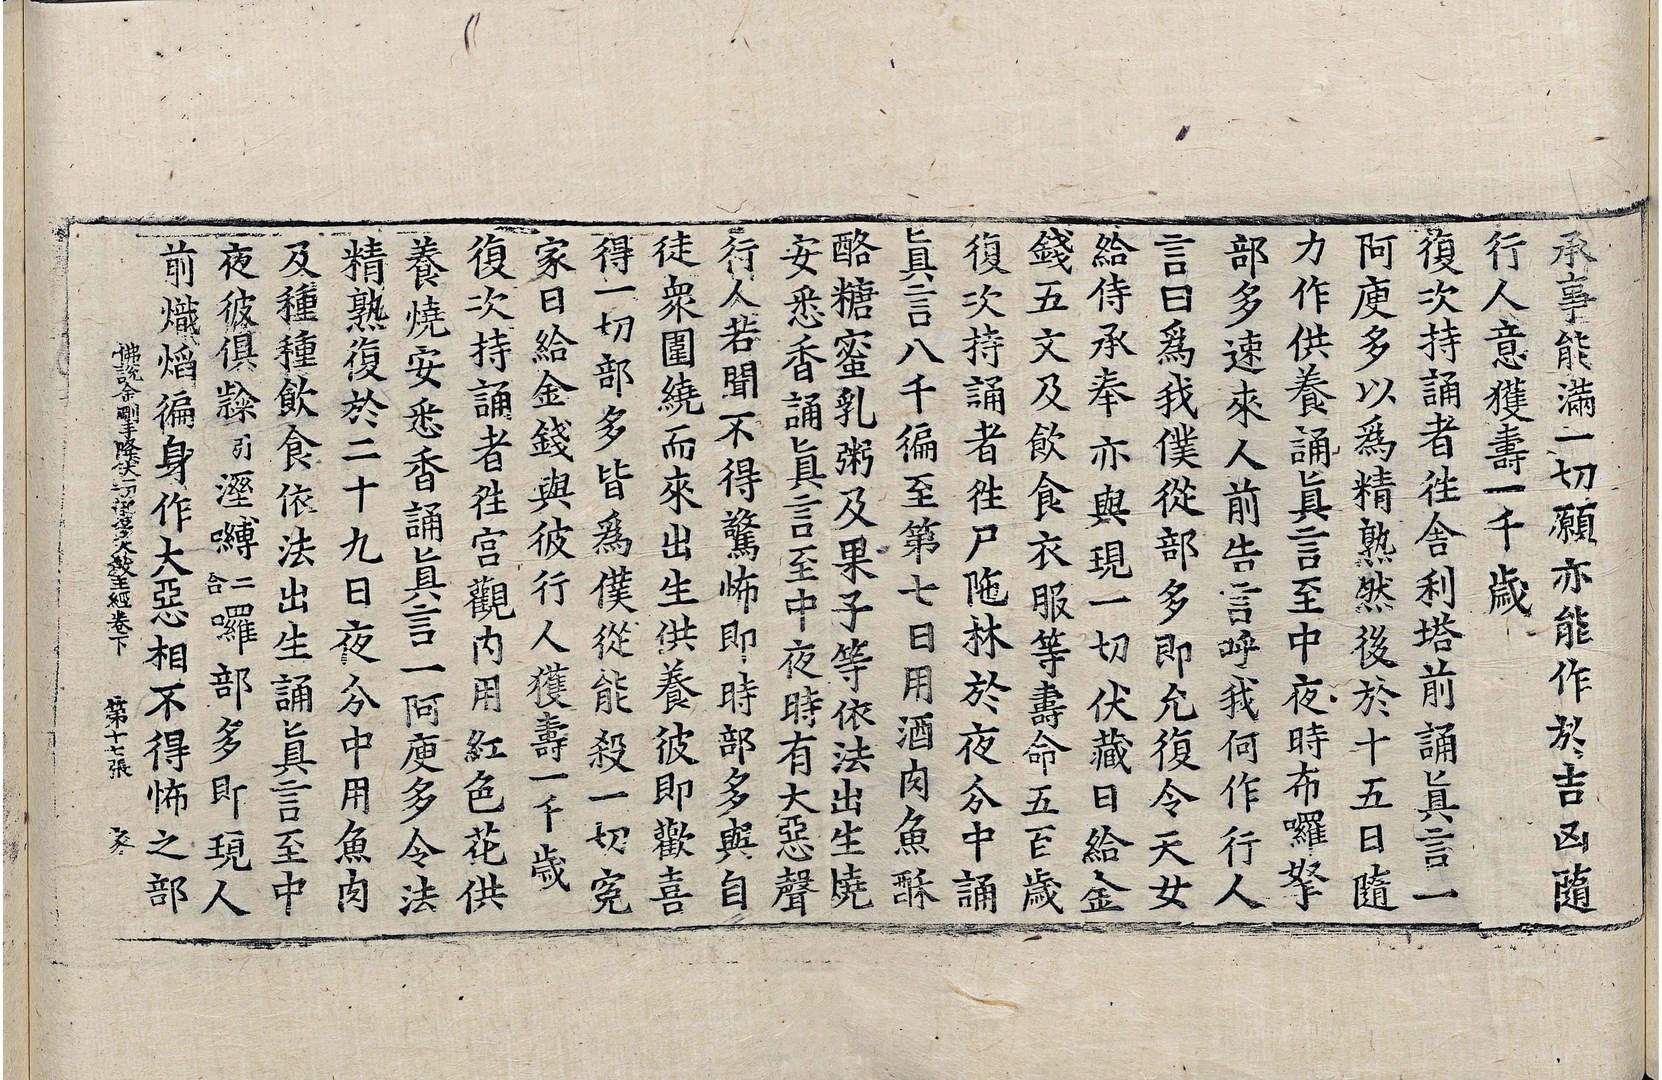 承事能滿一切願亦能作於吉凶隨
行人意獲壽一千歲
復次持誦者徃舍利塔前誦眞言一
阿庾多以爲精熟然後於十五日隨
力作供養誦眞言至中夜時布囉拏
部多速來人前告言呼我何作行人
言曰爲我僕從部多即允復令天女
給侍承奉亦與現一切伏藏日給金
錢五文及飲食衣服等壽命五百歲
復次持誦者徃尸陁林於夜分中誦
眞言八千徧至第七日用酒肉魚酥
酪糖蜜乳粥及果子等依法出生燒
安悉香誦眞言至中夜時有大惡聲
行人若聞不得驚怖即時部多與自
徒衆圍繞而來出生供養彼即歡喜
得一切部多皆爲僕從能殺一切寃
家日給金錢與彼行人獲壽一千歲
復次持誦者徃宮觀內用紅色花供
養燒安悉香誦眞言一阿庾多令法
精熟復於二十九日夜分中用魚肉
及種種飲食依法出生誦眞言至中
夜彼俱㯠引溼嚩二合囉部多即現人
前熾焰徧身作大惡相不得怖之部
佛說金剛手降伏一切部多大教王經卷下 第十七張